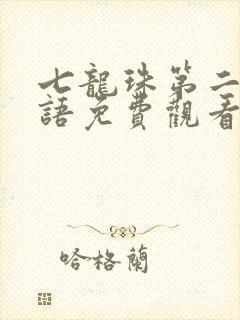 七龍珠第二
語免費觀看
哈格蘭